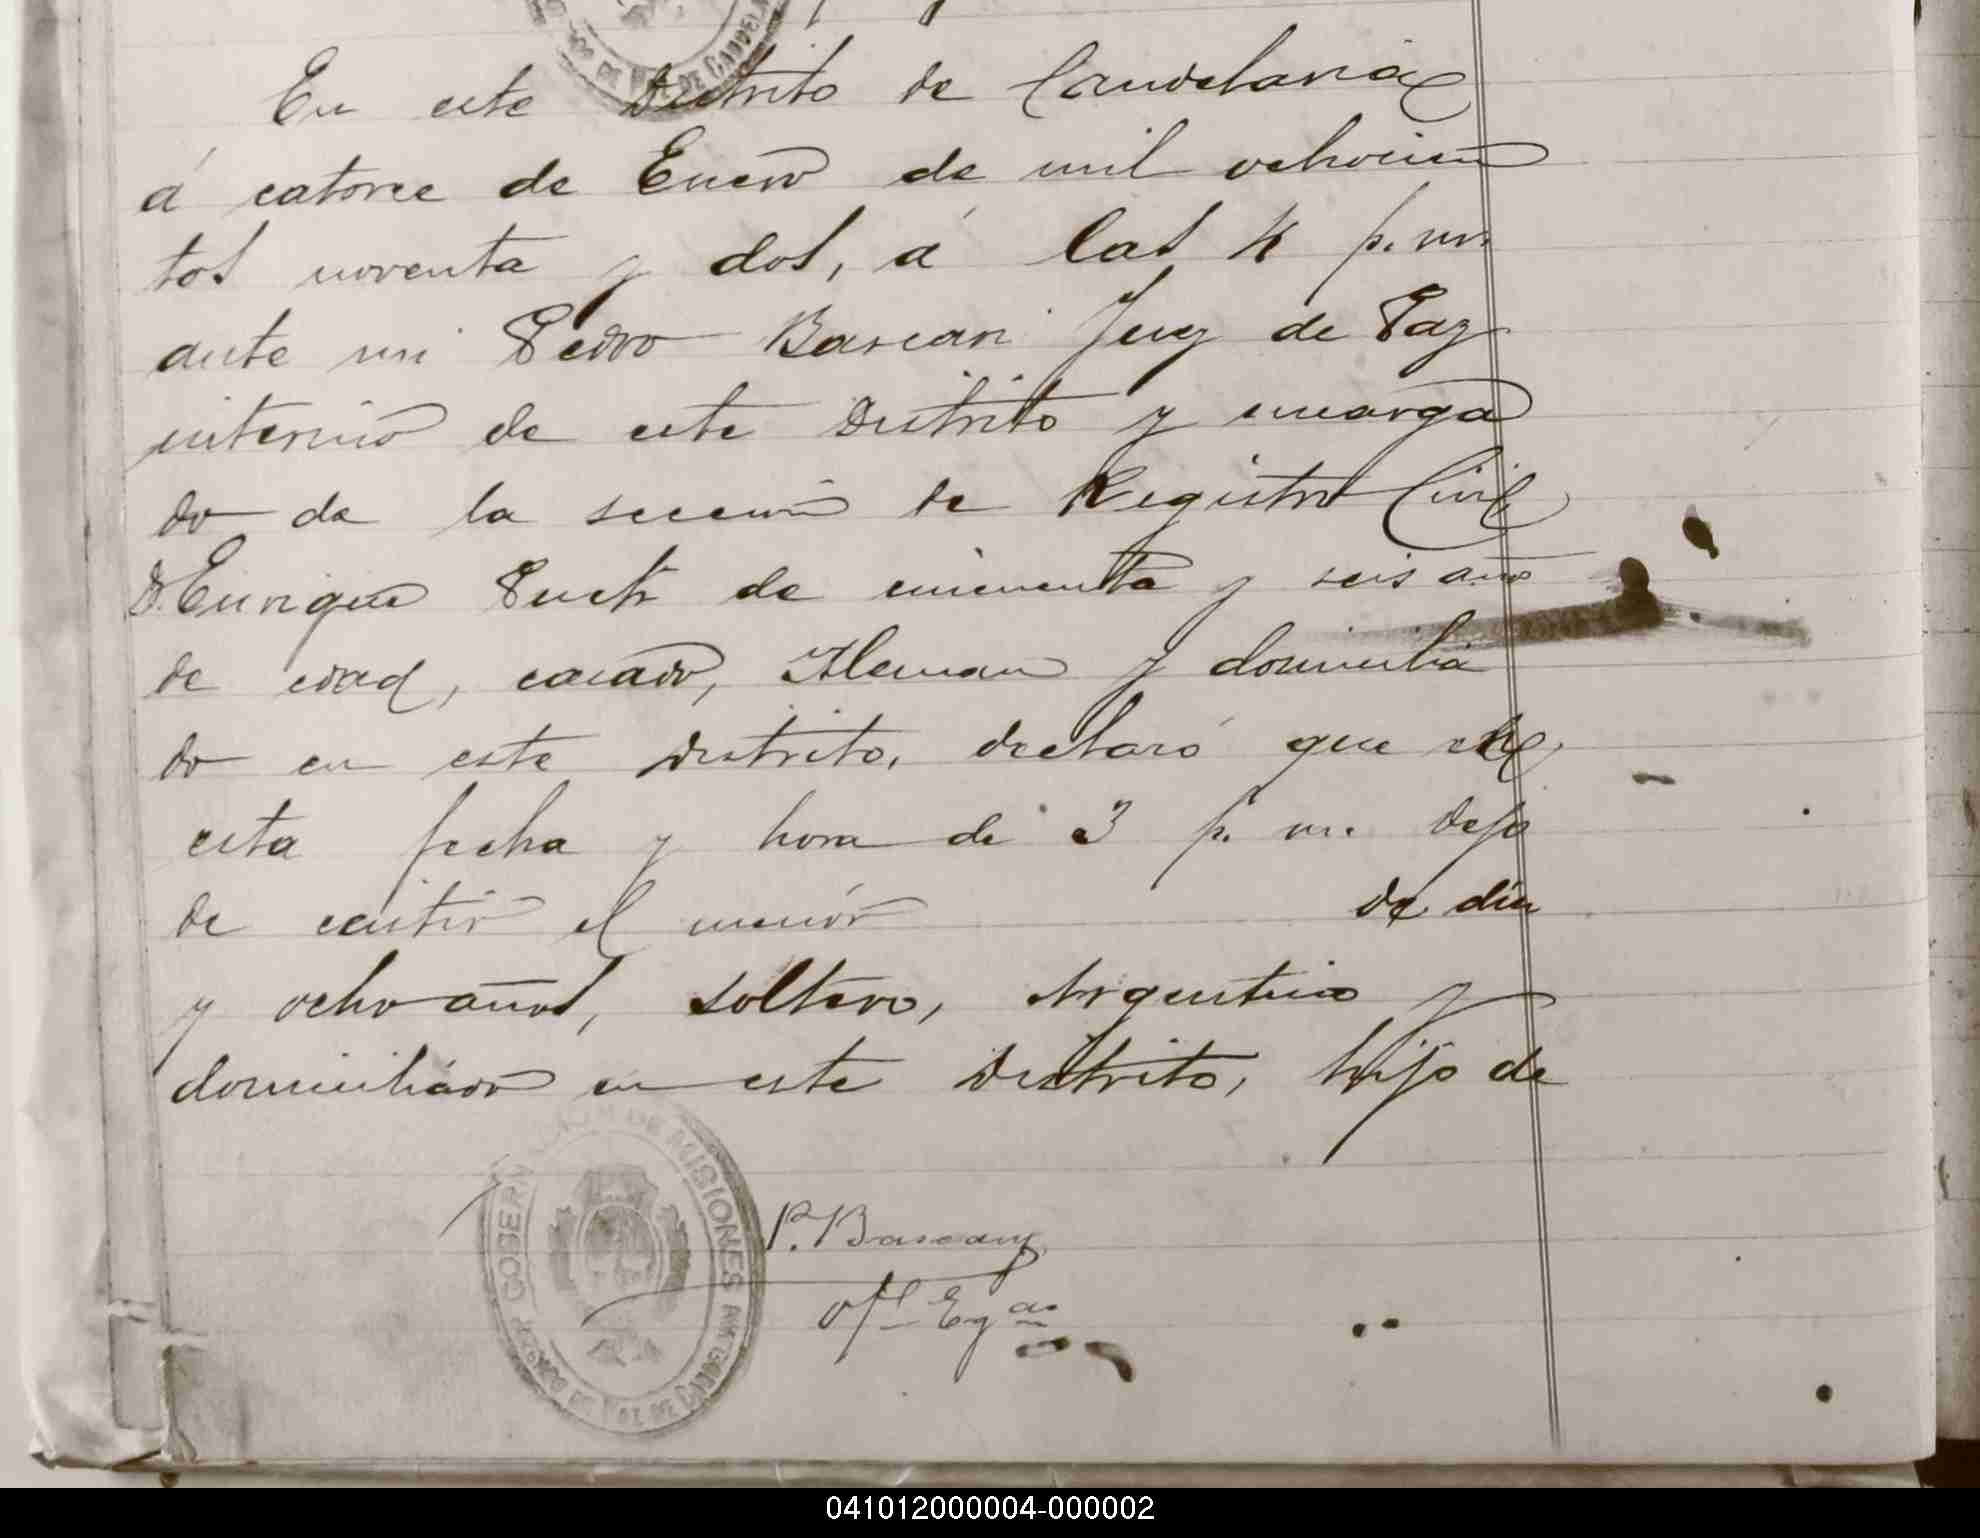 DO DE PAZ DE CANDELA
En este Distrito de Candelaria
á catorce de Enero de mil ochocien
tos noventa y dos, á las 4 p. m.
ante mi Pedro Bascari Juez de Paz
interino de este Distrito y encarga
do de la seccion de Registro Civil
D. Enrique de cincuenta y seis años
de edad, casado, Aleman y domicilia
do en este Distrito, declaró que en
esta fecha y hora de 3 p. m. dejo
de existir el menór de diez
y ocho años, soltero, Argentino y
domiciliado en este Distrito, hijo de
GOBERNACION DE MISIONES
JUZGADO DE PAZ DE
P. Bascary
041012000004-000002